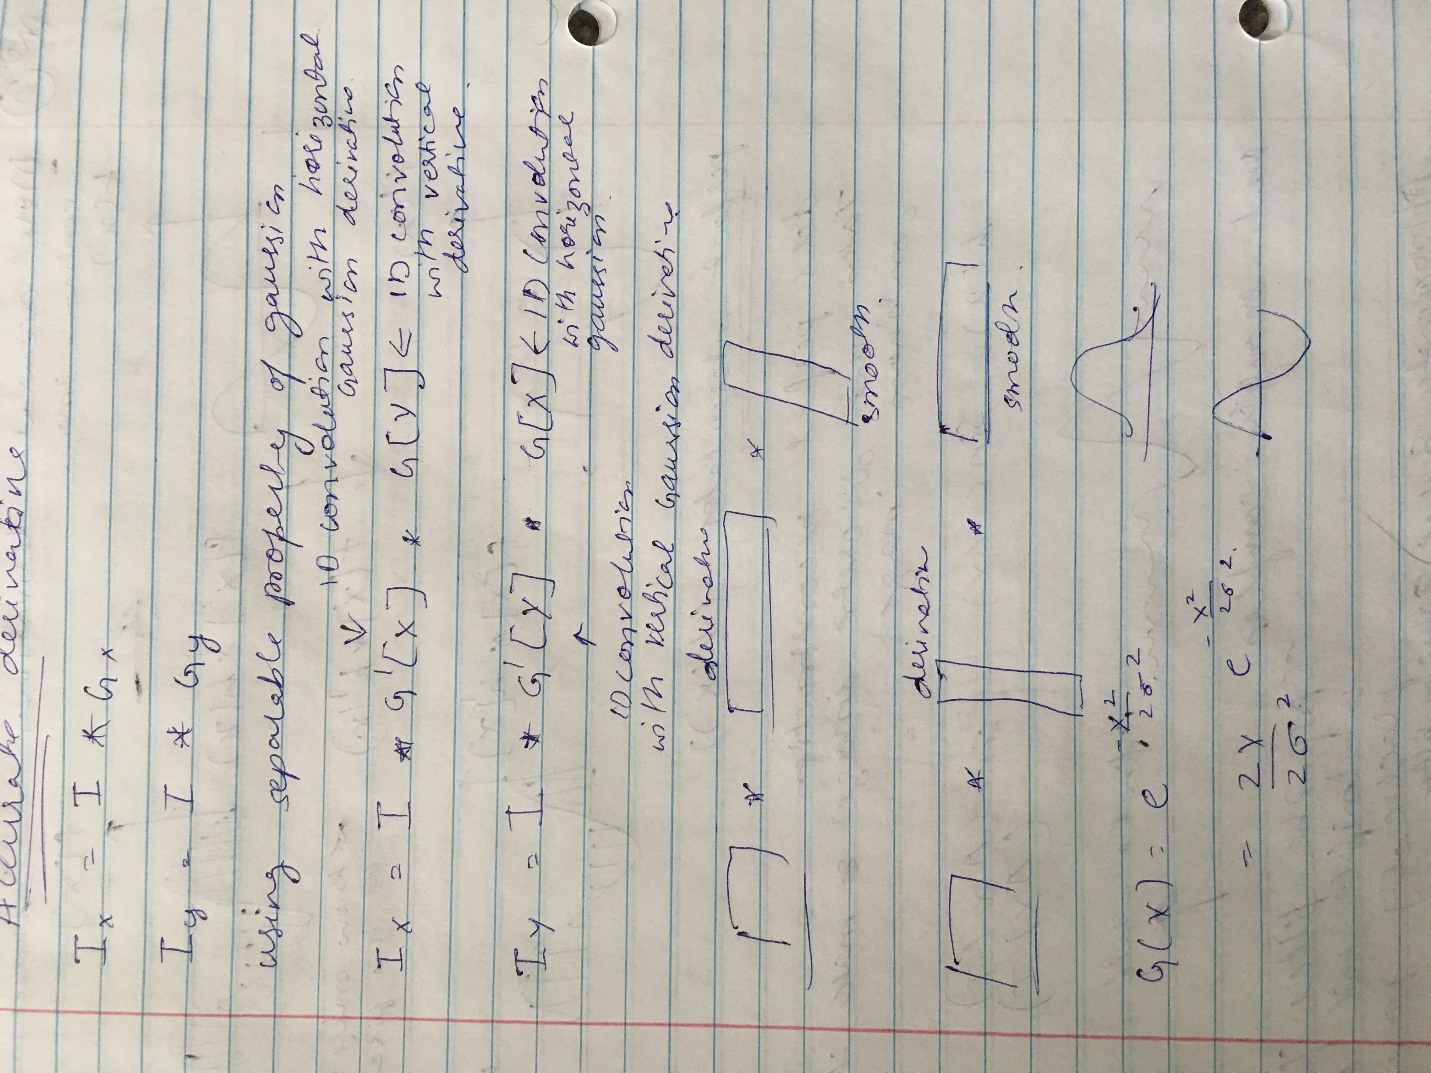 Accurate derivative
Ix = I * Gx
Iy = I * Gy
using separable property of gaussian
1D convolution with horizontal
Gaussian derivative
Ix = I * G'[x] * G[y] ← 1D convolution
with vertical
derivative.
Iy = I * G'[y] * G[x] ← 1D convolution
with horizontal
gaussian.
1D convolution
with vertical Gaussian derivative
derivative
* *
smooth.
derivative
* *
smooth.
G(x) = e -x²/2σ²
= 2x/2σ² e -x²/2σ²